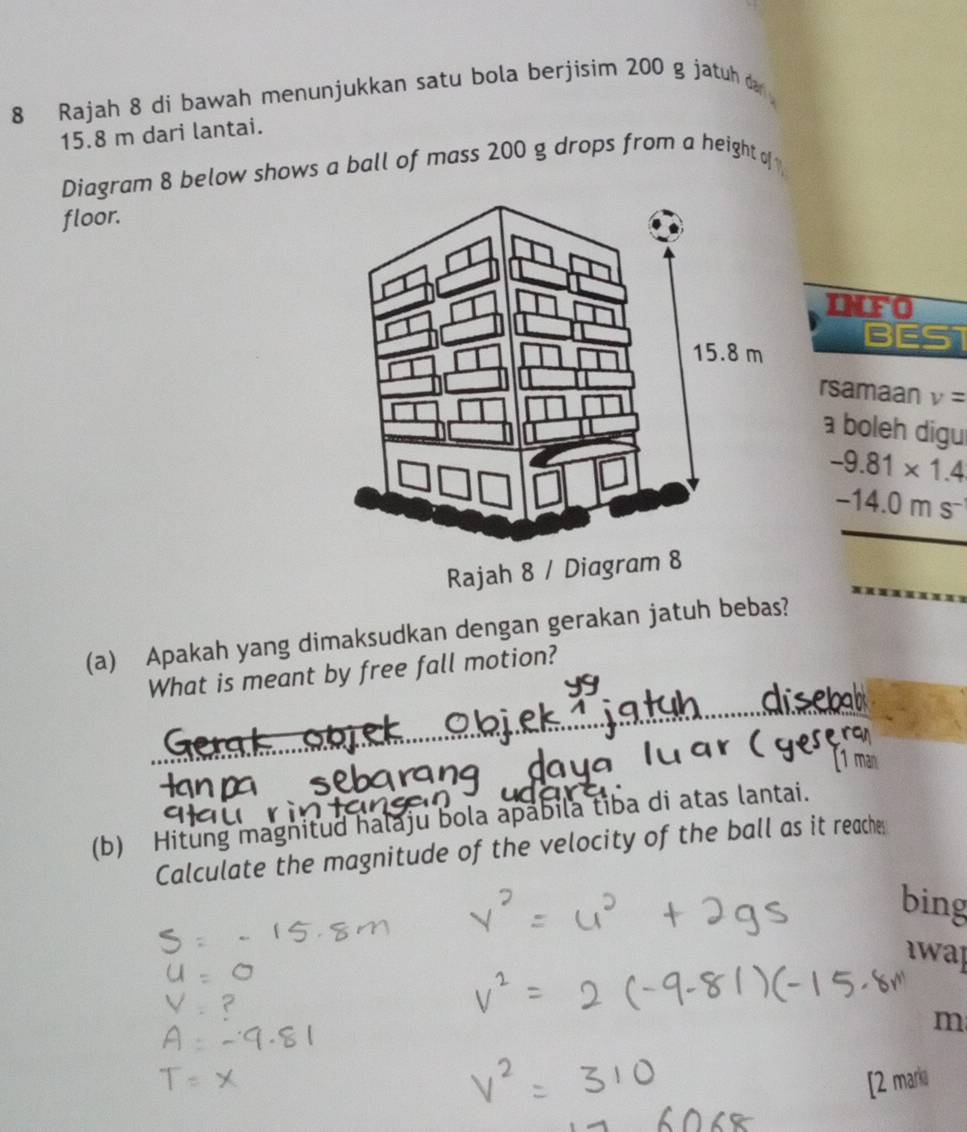 8 Rajah 8 di bawah menunjukkan satu bola berjisim 200 g jatuh
15.8 m dari lantai.
Diagram 8 below shows a ball of mass 200 g drops from a height of
floor.
15.8 m
Rajah 8 / Diagram 8
INFO
BEST
rsamaan v =
a boleh digu
-9.81 × 1.4
-14.0 m s⁻¹
(a) Apakah yang dimaksudkan dengan gerakan jatuh bebas?
What is meant by free fall motion?
Gerak objek objek yg jatuh disebab
tanpa sebarang daya luar (geseran
[1 mar
atau rintangan udara.
(b) Hitung magnitud halaju bola apabila tiba di atas lantai.
Calculate the magnitude of the velocity of the ball as it reaches
S = - 15.8m
u = 0
V = ?
A = -9.81
T = x
v² = u² + 2gs
v² = 2 (-9.81)(-15.8m
v² = 310
6068
bing
awap
m
[2 marka